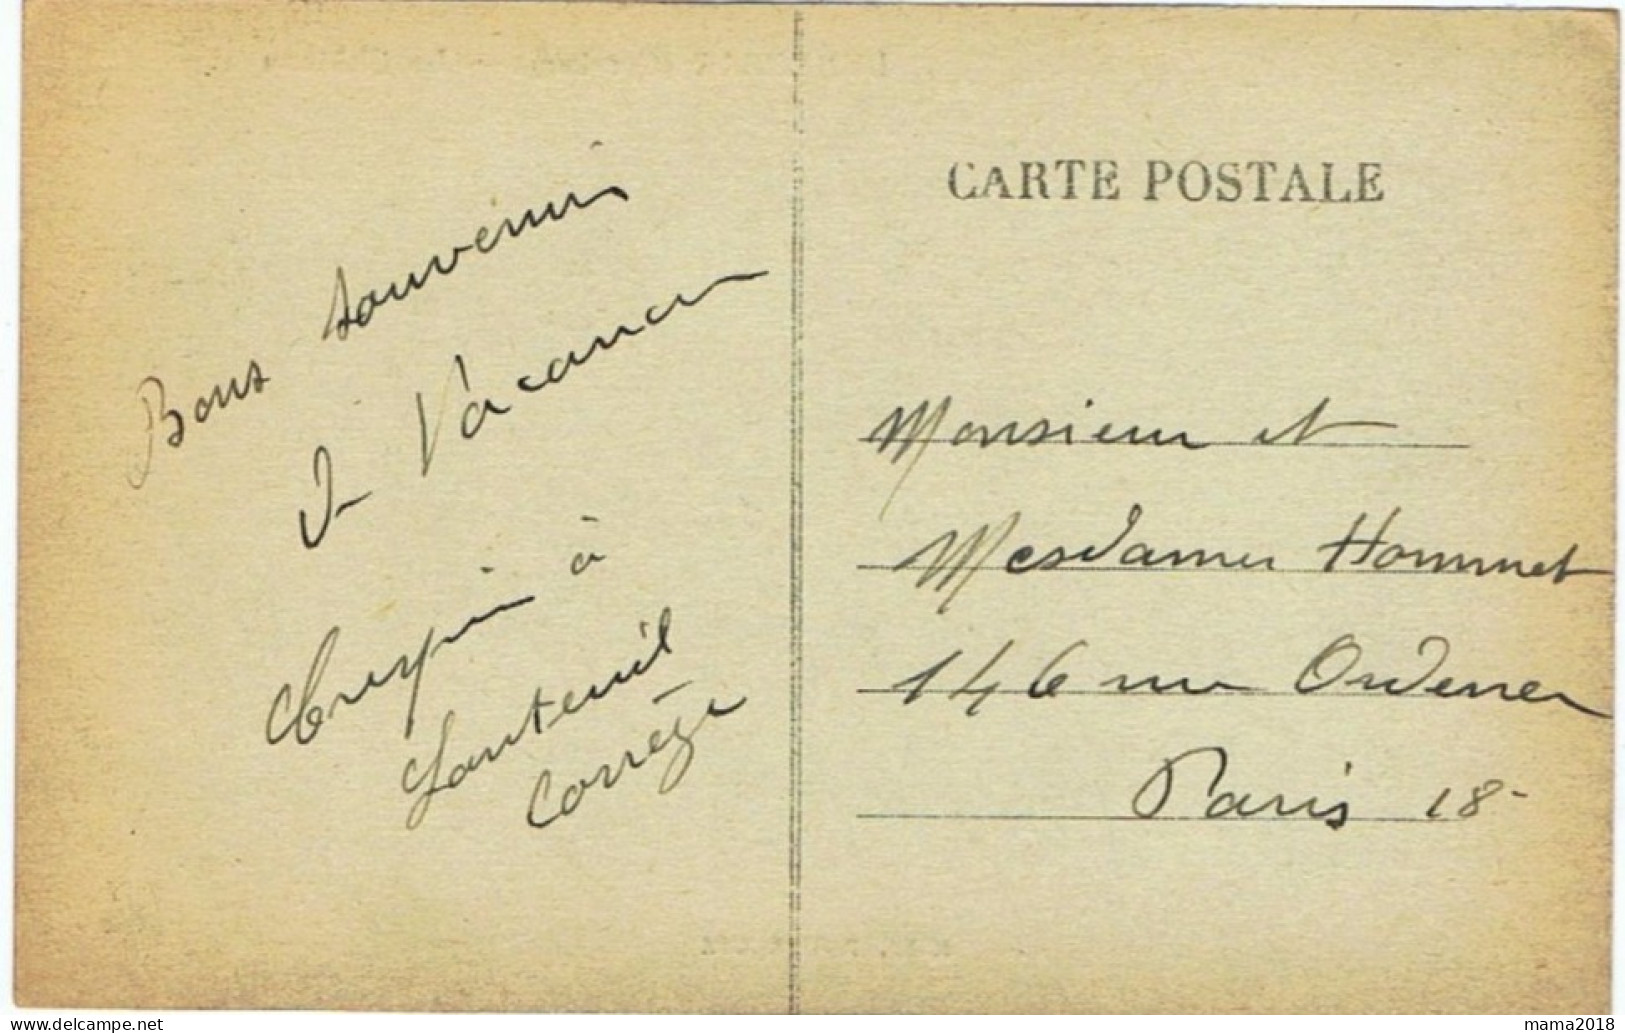 Bons souvenirs
de Vacances
Crespin à
Lanteuil
Corrèze
CARTE POSTALE
Monsieur et
Mesdames Hommet
146 rue Ordener
Paris 18
delcampe.net
mama2018